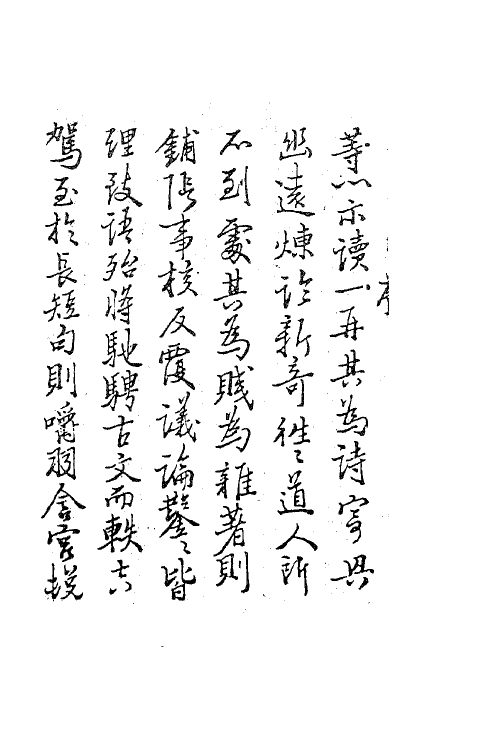 序
等以示读一再其為詩寄興
幽遠煉詮新奇往〻道人所
不到處其為賤為雜著則
鋪張事核反覆議論鑿〻皆
理致語殆將馳騁古文而軼古
駕至於長短句則嚼羽含宮按